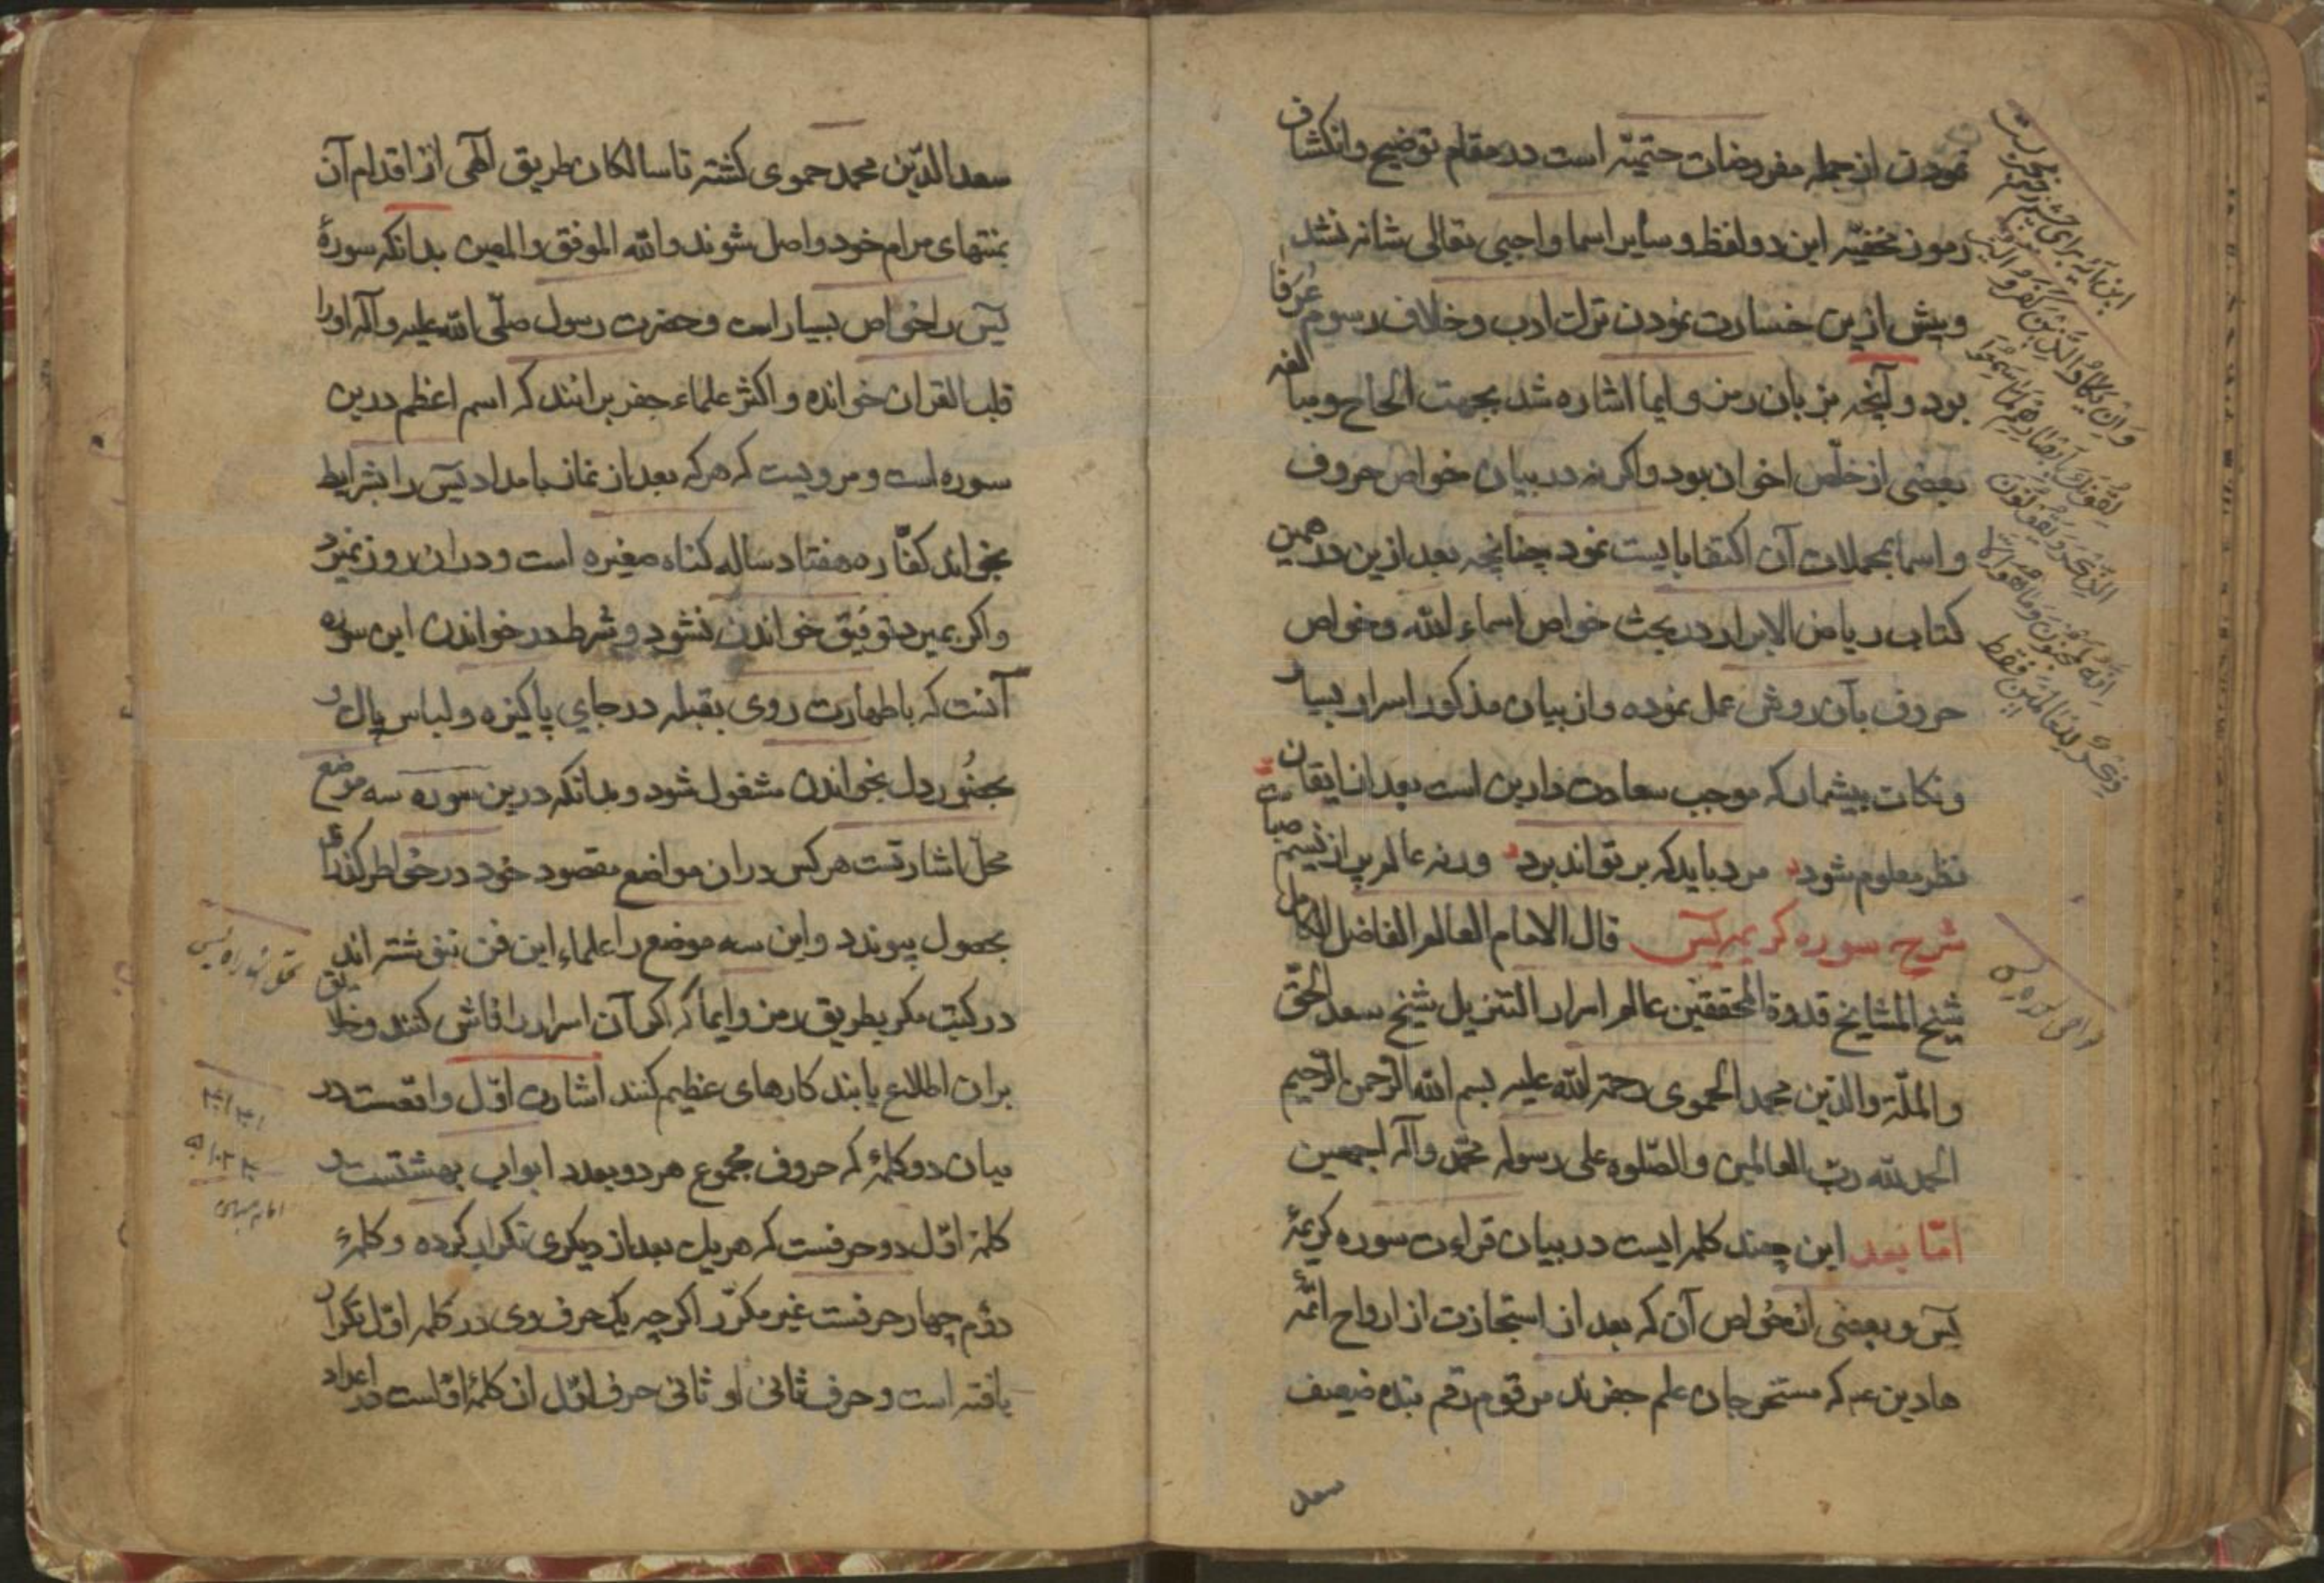 نمودن از جمله مفروضات حتمیّه است در مقام توضیح و انکشاف
رموز مخفیّه این دو لفظ و سایر اسما واجبی تعالی شانه نشد
و بیش ازین خسارت نمودن ترک ادب و خلاف رسوم عرفا
بود و آنچه بزبان رمز و ایما اشاره شد بجهت الحاح و مبالغه
بعضی از خلّص اخوان بود و اکر نه در بیان خواص حروف
و اسما بمجملات آن اکتفا بایست نمود چنانچه بعد ازین در همین
کتاب ریاض الابرار در بحث خواص اسماء الله و خواص
حروف بآن روش عمل نموده و از بیان مذکور اسرار بسیار
و نکات بیشمار که موجب سعادت دارین است بعد از ایقان
نظر معلوم شود مرد باید که بر تواند برد ورنه عالم پر از نسیم صباست
شرح سوره کریمه یس قال الامام العالم الفاضل الکامل
شیخ المشایخ قدوة المحققین عالم اسرار التنزیل شیخ سعد الحقّ
والملّة والدّین محمد الحموی رحمة الله علیه بسم الله الرحمن الرحیم
الحمد لله ربّ العالمین والصّلوه علی رسوله محمّد وآله اجمعین
امّا بعد این چند کلمه ایست در بیان قراءت سوره کریمهٔ
یس و بعضی از خواص آن که بعد از استجازت از ارواح ائمّهٔ
هادین عم که مستخرجان علم جفرند مرقوم رقم بنده ضعیف
سعد
این آیه برای چشم زخم
وَاِن یَکادُ الَّذینَ کَفَرُوا
لَیُزلِقُونَکَ بِاَبصارِهِم لَمّا سَمِعُوا
الذِّکرَ وَ یَقُولُونَ
اِنَّهُ لَمَجنُونٌ وَما هُوَ اِلّا
ذِکرٌ لِلعالَمین فقط
سعد الدّین محمد حموی کشته تا سالکان طریق الهی از اقدام آن
بمنتهای مرام خود واصل شوند والله الموفق والمعین بدانکه سورهٔ
یس را خواص بسیار است و حضرت رسول صلّی الله علیه وآله او را
قلب القران خوانده و اکثر علماء جفر برانند که اسم اعظم درین
سوره است و مرویست که هر که بعد از نماز بامداد یس را بشرایط
بخواند کفّاره هفتاد ساله کناه صغیره است و دران روز نمیرد
و اکر بمیرد توفیق خواندن نشود و شرط در خواندن این سوره
آنست که با طهارت روی بقبله در جای پاکیزه و لباس پاک و
بحضُور دل بخواندن مشغول شود و بدانکه درین سوره سه موضع
محلّ اشارتست هر کس دران مواضع مقصود خود در خواطر کذراند
بحصول پیوندد و این سه موضع را علماء این فن ننوشته اند
در کتب مکر بطریق رمز و ایما که اکر آن اسرار را فاش کنند و خلایق
بران اطلاع یابند کارهای عظیم کنند اشارت اوّل واقعست در
میان دو کلمهٔ که حروف مجموع هر دو بعدد ابواب بهشتست و
کلمهٔ اوّل دو حرفست که هر یک بعد از دیکری تکرار کرده و کلمهٔ
دوّم چهار حرفست غیر مکرّر اکرچه یک حرف وی در کلمه اوّل تکرار
یافته است و حرف ثانی او ثانی حرف اوّل از کلمهٔ اوّلست در اعداد